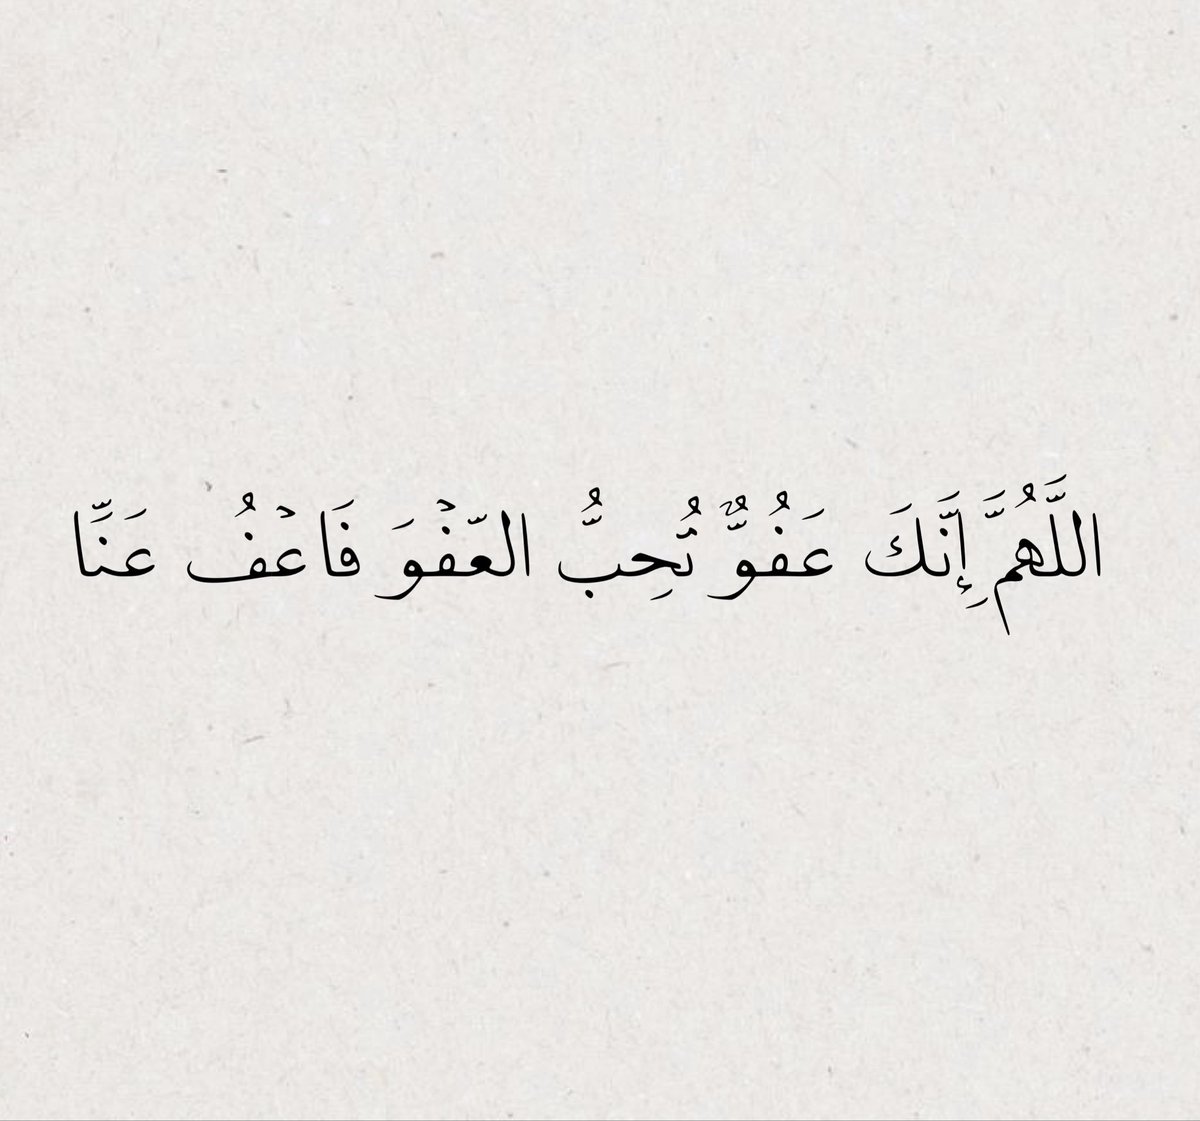 اللَّهُمَّ إِنَّكَ عَفُوٌّ تُحِبُّ العَّفْوَ فَاعْفُ عَنَّا